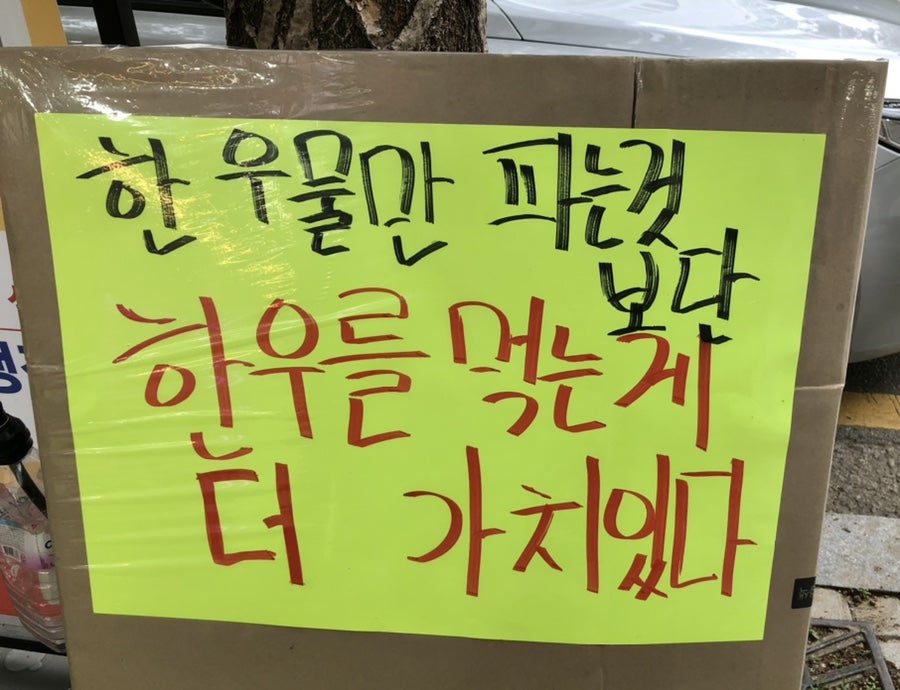 한 우물만 파는것
보단
한우를 먹는게
더 가치있다